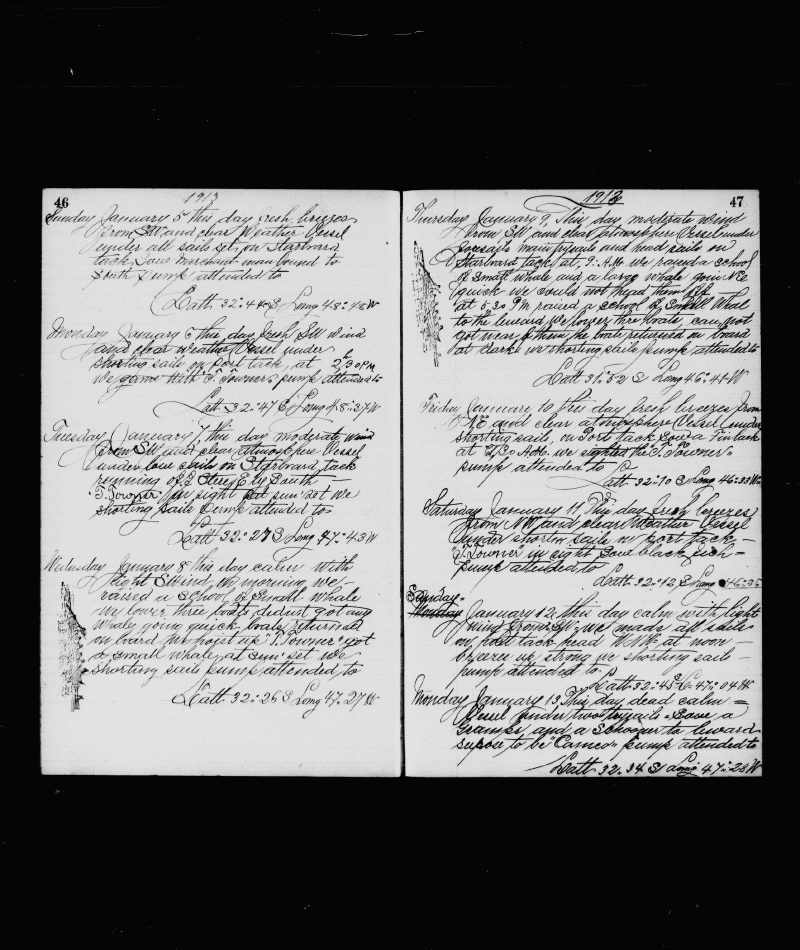 46
1913
Sunday January 5 this day fresh breezes
from SW and clear Weather Vessel
under all sails set, on Starboard
tack Saw merchant man bound to
South pump attended to
Latt 32:44 S Long 48:48 W
Monday January 6 this day fresh SW wind
and clear weather Vessel under
shorting sails on Port tack, at 2h30 PM
we gamed with J. Towner pump attended to
Latt 32:47 Long 48:37 W
Tuesday January 7, this day moderate wind
from SW and clear atmosphere Vessel
under low sails on Starboard tack
running off E Steer E by South
J. Towner in sight at sun set we
shorting sails Pump attended to
Latt 32:27 S Long 47:43 W
Wednesday January 8 this day calm with
light S Wind, the morning we
raised a School of Small whale
we lower three boats didnst got any
whale going quick boats returned
on board up J. Towner got
a small whale, at sun set we
shorting sails pump attended to
Latt 32:26 S Long 47:27 W
47
1913
Thursday January 9, This day moderate wind
from SW and clear atmosphere Vessel under
foresail main trysail and head sails on
Starboard tack at 9: A.M. we raised a school
of small whale and a large whale goin NE
quick we could not head them off
at 5.30 PM raised a school of Small Whal
to the leward we lower three boats can not
got near to them the boats returned on board
at dark we shorting sails pump attended to
Latt 31:52 S Long 46:41 W
Friday January 10 this day fresh breezes from
N.E and clear atmosphere Vessel under
shorting sails, on Port tack Saw a Finback
at 2/30 A.M. we sighted the J. Towner
pump attended to
Latt 32:10 S Long 46:33 W
Saturday January 11 This day fresh breezes
from NW and clear Weather Vessel
Under shorten sails on port tack
J. Towner in sight Saw black fish
pump attended to
Latt 32:12 S Long 46:35
Sunday
Monday January 12, this day calm with light
wind from SW, we made all sails
on port tack head WNW at noon
breeze up strong we shorting sails
pump attended to
Latt 32:45 S Lo 47:04 W
Monday January 13 This day dead calm
Vessel under two trysails Saw a
Gramps and a Schooner to leward
supose to be "Cameo" pump attended to
Latt 32.34 S Long 47:28 W